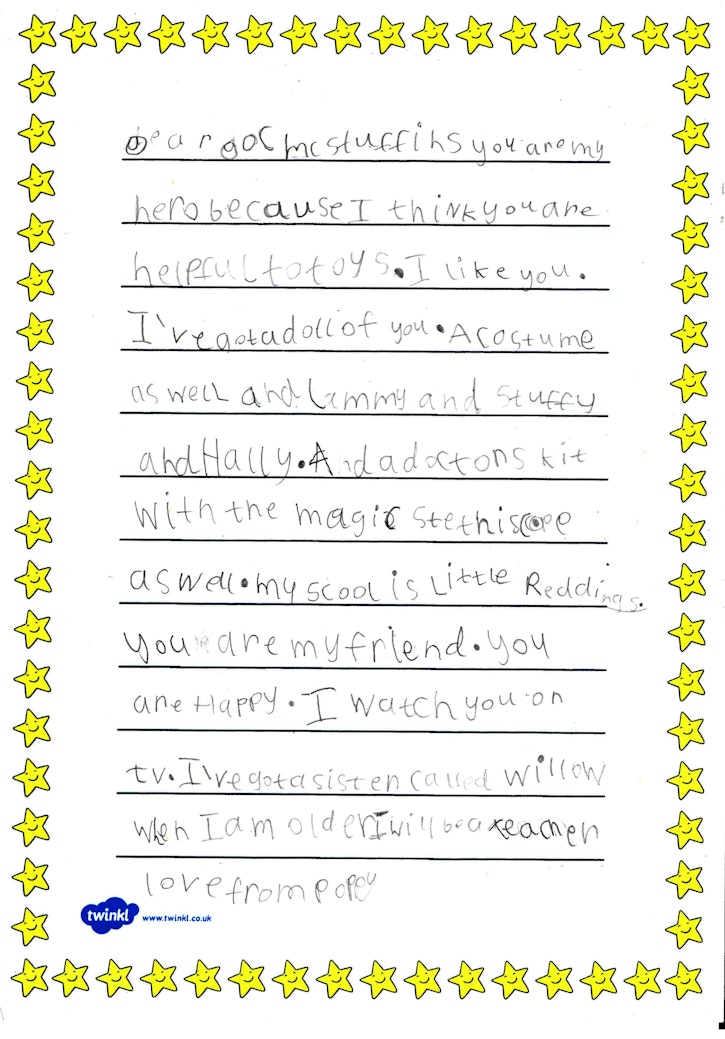 Dear Doc mcstuffins you are my
hero because I think you are
helpful to toys. I like you.
I've got a doll of you. A costume
as well and Lammy and stuffy
and Hally. And a doctors kit
with the magic stethiscope
as well. my scool is Little Reddings.
you are my friend. you
are Happy. I watch you on
tv. I've got a sister called willow
when I am older I will be a teacher
love from poppy
twinkl www.twinkl.co.uk